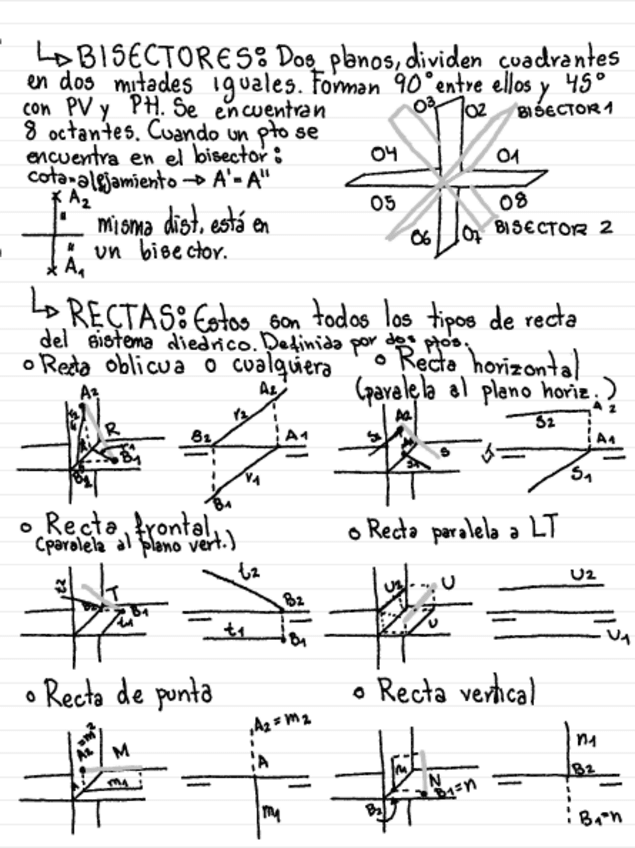 ↳ BISECTORES: Dos planos, dividen cuadrantes
en dos mitades iguales. Forman 90° entre ellos y 45°
con PV y PH. Se encuentran
8 octantes. Cuando un pto se
encuentra en el bisector:
cota=alejamiento → A' = A"
O3
O2
BISECTOR 1
O4
O1
O5
O8
O6
O7
BISECTOR 2
A2
A1
misma dist, está en
un bisector.
↳ RECTAS: Estos son todos los tipos de recta
del sistema diedrico. Definida por dos ptos.
○ Recta oblicua o cualquiera
A2
R
r1
B1
B2
A2
r2
B2
A1
r1
B1
○ Recta horizontal
(paralela al plano horiz.)
A2
S
S1
A2
S2
A1
S1
○ Recta frontal
(paralela al plano vert.)
t2
T
B1
t1
t2
B2
t1
B1
○ Recta paralela a LT
U2
U
U
U2
U1
○ Recta de punta
A2=m2
M
m1
A2=m2
A
m1
○ Recta vertical
N
B1=n
B2
n1
B2
B1=n